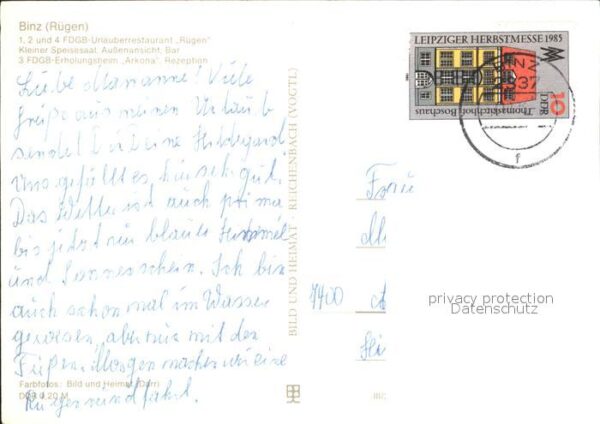 Binz (Rügen)
1, 2 und 4 FDGB-Urlauberrestaurant „Rügen"
Kleiner Speisesaal, Außenansicht, Bar
3 FDGB-Erholungsheim „Arkona", Rezeption
Liebe Marianne! Viele
Grüße aus meinen Urlaub
sendet Dir Deine Hildegard
Uns gefällt es hier sehr gut.
Das Wetter ist auch prima
bis jetzt nur blauer Himmel
und Sonnenschein. Ich bin
auch schon mal im Wasser
gewesen, aber nur mit den
Füßen. Morgen machen wir eine
Rügenrundfahrt.
Farbfotos: Bild und Heimat (Darr)
DDR 0,20 M
BILD UND HEIMAT REICHENBACH (VOGTL)
LEIPZIGER HERBSTMESSE 1985
Thomaskirchhof · Bosehaus
10
DDR
BINZ
2337
f
Frau
7400
privacy protection
Datenschutz